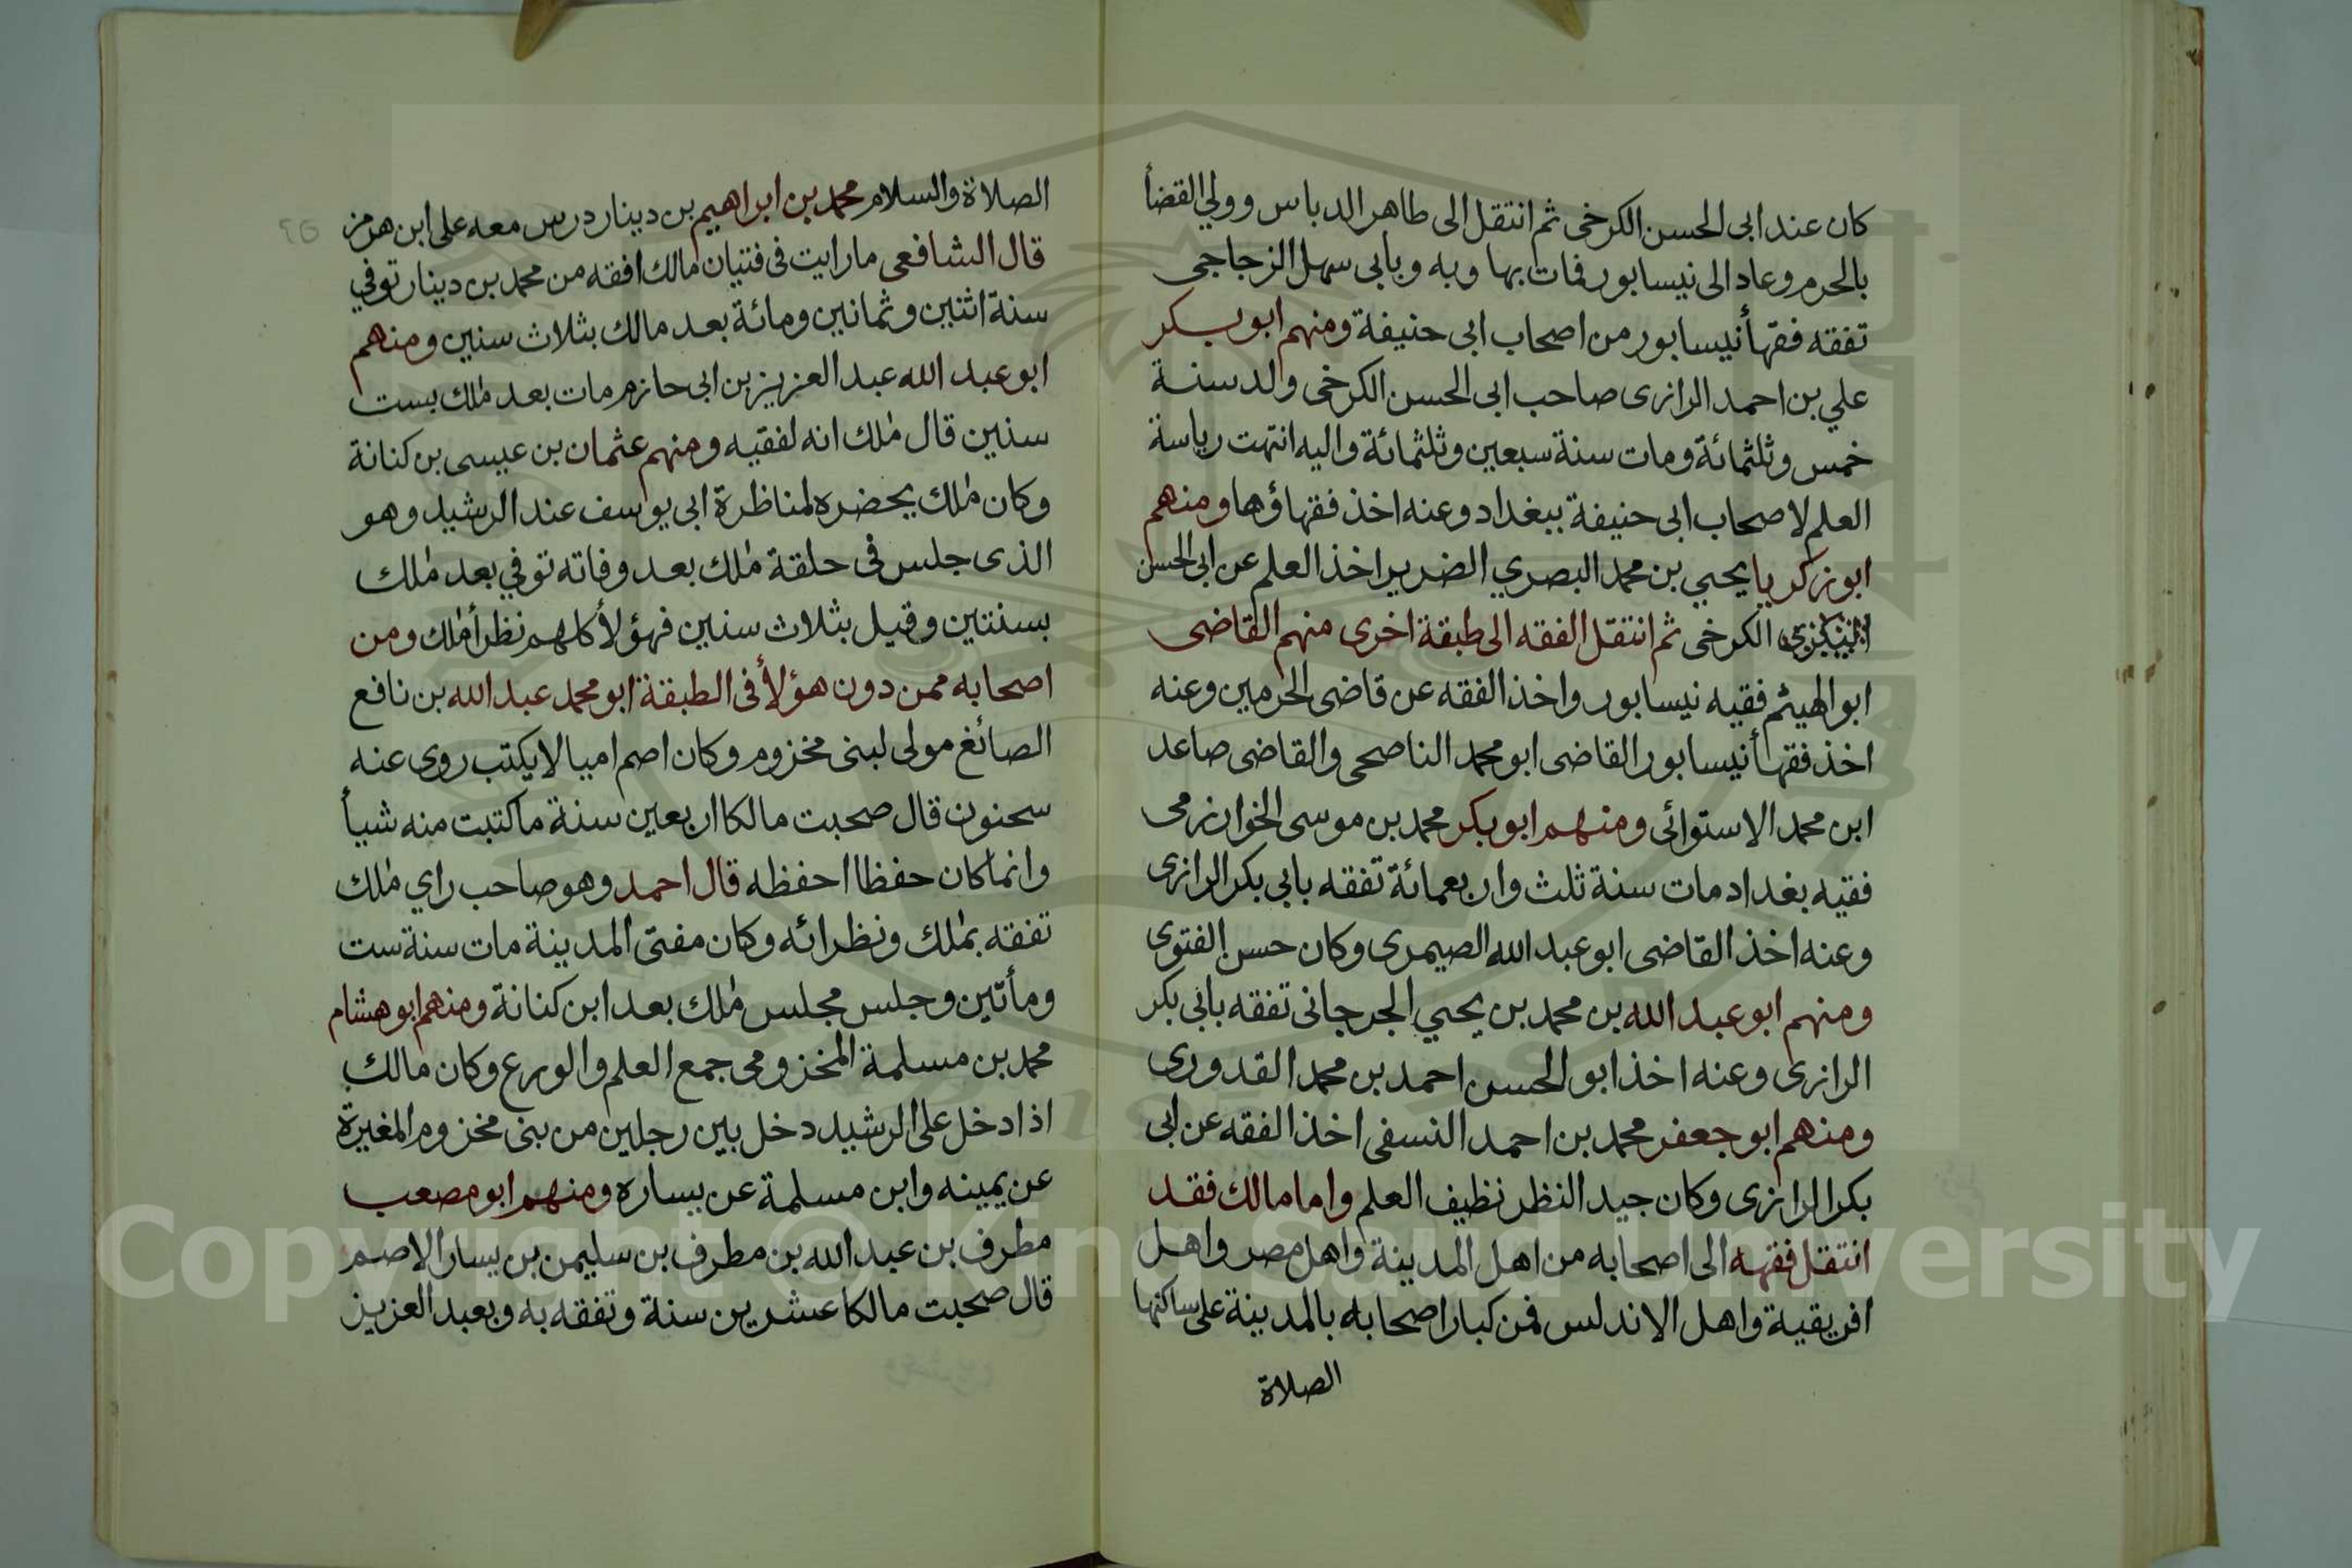 كان عند ابى الحسن الكرخى ثم انتقل الى طاهر الدباس وولي القضأ
بالحرم وعاد الى نيسابور فمات بها وبه وبابى سهل الزجاجى
تفقه فقهأ نيسابور من اصحاب ابى حنيفة ومنهم ابو بكر
علي بن احمد الرازى صاحب ابى الحسن الكرخى ولد سنة
خمس وثلثمائة ومات سنة سبعين وثلثمائة واليه انتهت رياسة
العلم لاصحاب ابى حنيفة ببغداد وعنه اخذ فقهاؤها ومنهم
ابو زكريا يحيي بن محمد البصري الضرير اخذ العلم عن ابى الحسن
الكرخى ثم انتقل الفقه الى طبقة اخرى منهم القاضى
ابو الهيثم فقيه نيسابور واخذ الفقه عن قاضى الحرمين وعنه
اخذ فقهأ نيسابور القاضى ابو محمد الناصحى والقاضى صاعد
ابن محمد الاستوائى ومنهم ابو بكر محمد بن موسى الخوارزمى
فقيه بغداد مات سنة ثلث واربعمائة تفقه بابي بكر الرازى
وعنه اخذ القاضى ابو عبد الله الصيمرى وكان حسن الفتوى
ومنهم ابو عبد الله بن محمد بن يحيي الجرجانى تفقه بابى بكر
الرازى وعنه اخذ ابو الحسن احمد بن محمد القدورى
ومنهم ابو جعفر محمد بن احمد النسفى اخذ الفقه عن ابى
بكر الرازى وكان جيد النظر نظيف العلم واما مالك فقد
انتقل فقهه الى اصحابه من اهل المدينة واهل مصر واهل
افريقية واهل الاندلس فمن كبار اصحابه بالمدينة على ساكنها
الصلاة
الصلاة والسلام محمد بن ابراهيم بن دينار درس معه على ابن هرمز
قال الشافعى مارايت فى فتيان مالك افقه من محمد بن دينار توفي
سنة اثنين وثمانين ومائة بعد مالك بثلاث سنين ومنهم
ابو عبد الله عبد العزيز بن ابى حازم مات بعد ملك بست
سنين قال ملك انه لفقيه ومنهم عثمان بن عيسى بن كنانة
وكان ملك يحضره لمناظرة ابى يوسف عند الرشيد وهو
الذى جلس فى حلقة ملك بعد وفاته توفي بعد ملك
بسنتين وقيل بثلاث سنين فهؤلأ كلهم نظرأ ملك ومن
اصحابه ممن دون هؤلأ فى الطبقة ابو محمد عبد الله بن نافع
الصائغ مولى لبنى مخزوم وكان اصم اميا لا يكتب روى عنه
سحنون قال صحبت مالكا اربعين سنة ماكتبت منه شيأ
وانما كان حفظا احفظه قال احمد وهو صاحب راي ملك
تفقه بملك ونظرائه وكان مفتى المدينة مات سنة ست
ومأتين وجلس مجلس ملك بعد ابن كنانة ومنهم ابو هشام
محمد بن مسلمة المخزومى جمع العلم والورع وكان مالك
اذا دخل على الرشيد دخل بين رجلين من بنى مخزوم المغيرة
عن يمينه وابن مسلمة عن يساره ومنهم ابو مصعب
مطرف بن عبد الله بن مطرف بن سليمن بن يسار الاصم
قال صحبت مالكا عشرين سنة وتفقه به وبعبد العزيز
Copyright © King Saud University